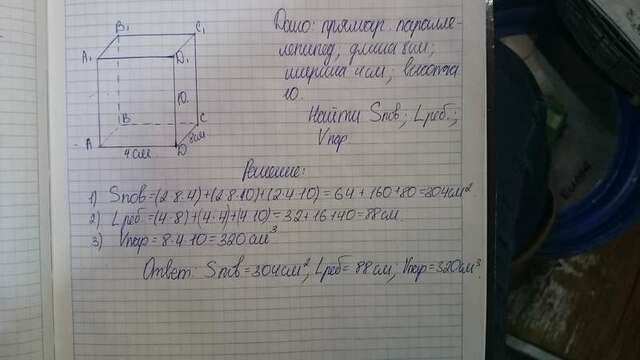 A₁
B₁
D₁
C₁
A
B
D
C
10
4 см
8 см
Дано: прямой паралле-
лепипед, длина 8 см;
ширина 4 см; высота
10.
Найти Sпов; Lреб;
Vпар
Решение:
1) Sпов=(2·8·4)+(2·8·10)+(2·4·10)=64+160+80=304см²
2) Lреб=(4·8)+(4·4)+(4·10)=32+16+40=88см.
3) Vпар=8·4·10=320см³
Ответ: Sпов=304см²; Lреб=88см; Vпар=320см³.